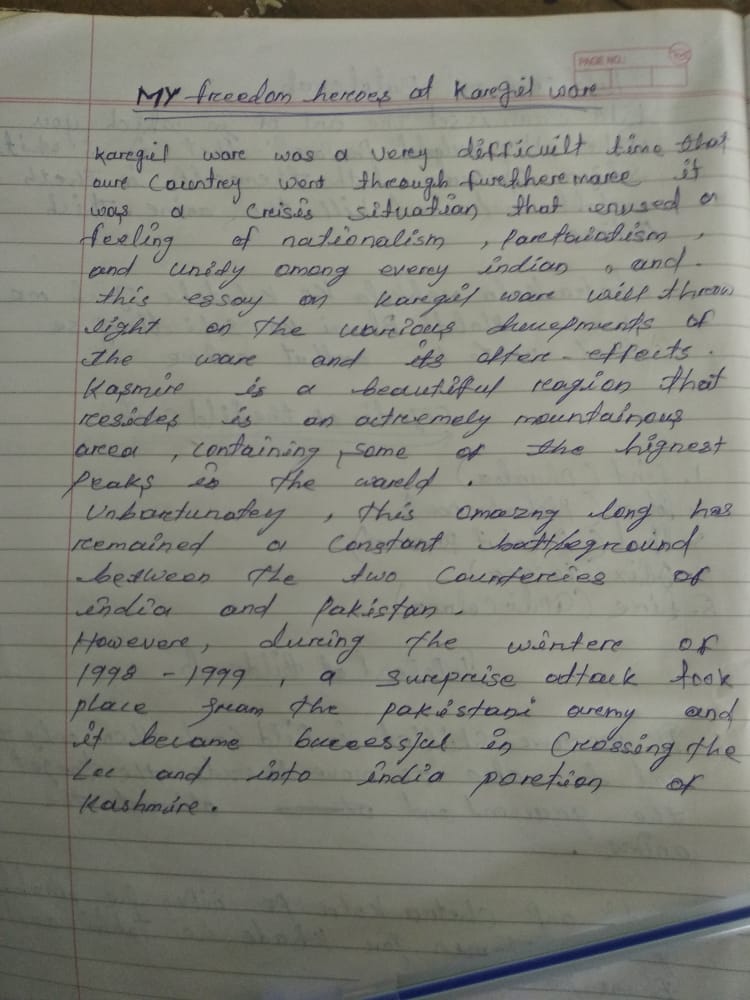 PAGE NO.:
MY freedom heroes of Karegil ware
Karegil ware was a verey difficuilt time that
oure Countrey went through furethheremaree it
was a Crisis situation that enused a
feeling of nationalism, paretaiotism,
and unidy among everey indian, and.
this essay on Karegil ware will throw
light on the various devepments of
the ware and its aftere-effects.
Kasmire is a beautiful reagion that
resides is an actremely mountainous
area, containing, some of the highest
peaks in the wareld.
Unbortunatey, this amazng long has
remained a constant battbeground
between the two Counteries of
india and pakistan.
Howevere, dureing the wintere of
1998-1999, a surepreise attack took
place fream the pakistani aremy and
it became successful in Crossing the
Loc and into india poretion of
Kashmire.